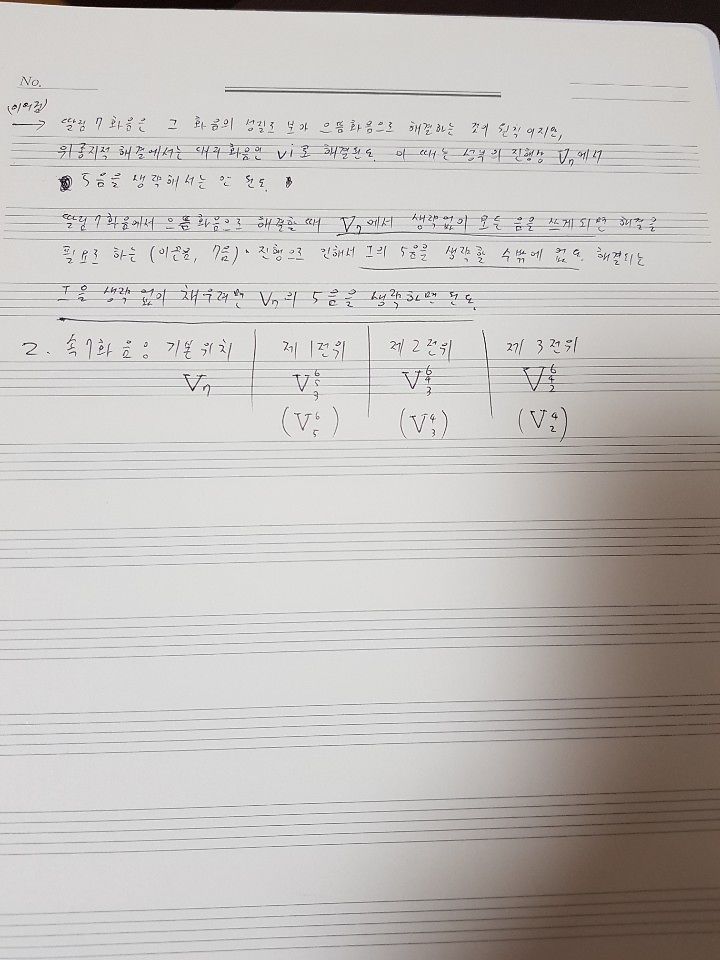 No.
(이어짐)
→ 딸림7화음은 그 화음의 성질로 보아 으뜸화음으로 해결하는 것이 원칙이지만,
위종지적 해결에서는 대리화음인 vi로 해결된다. 이 때는 성부의 진행상 V7에서
5음을 생략해서는 안 된다.
딸림7화음에서 으뜸화음으로 해결할 때 V7에서 생략없이 모든 음을 쓰게되면 해결을
필요로 하는 (이끈음, 7음) 진행으로 인해서 I의 5음을 생략할 수밖에 없다. 해결되는
I을 생략 없이 채우려면 V7의 5음을 생략하면 된다.
2. 속7화음 기본위치 제1전위 제2전위 제3전위
V7 V6 5 3 V6 4 3 V6 4 2
(V6 5) (V4 3) (V4 2)